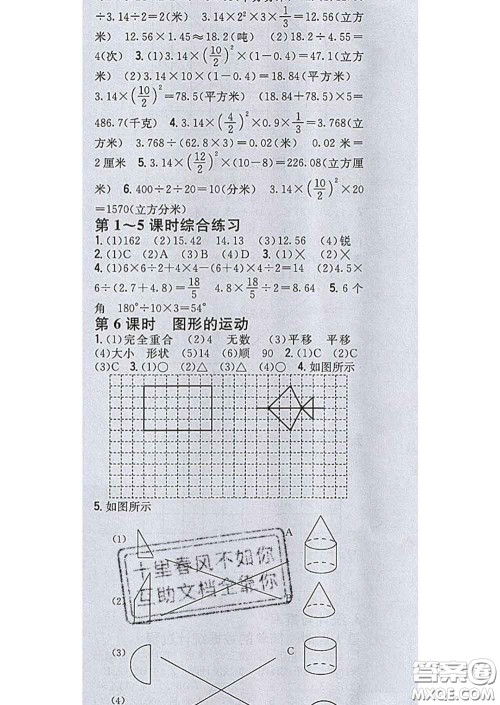 ÷3.14÷2=2(米) 3.14×2²×3×1/3=12.56(立方
米) 12.56×1.45≈18.2(吨) (2)18.2÷4.55=
4(次) 3.(1)3.14×(10/2)²×(1-0.4)=47.1(立方
米) (2)3.14×10×(1-0.4)=18.84(平方米)
3.14×(10/2)²=78.5(平方米) (18.84+78.5)×5=
486.7(千克) 4.3.14×(4/2)²×0.9×1/3=3.768(立方
米) 3.768÷(62.8×3)=0.02(米) 0.02米=
2厘米 5.3.14×(12/2)²×(10-8)=226.08(立方厘
米) 6.400÷2÷20=10(分米) 3.14×(10/2)²×20
=1570(立方分米)
第1～5课时综合练习
1.(1)162 (2)15.42 14.13 (3)12.56 (4)锐
2.(1)C (2)A (3)B (4)D 3.(1)╳ (2)╳
4.(1)6×6÷2+4×4-(6+4)×4÷2=14 (2)4.5×
6÷(2.7+4.8)=18/5 4.8×18/5÷2=8.64 5.6个
角 180°÷10×3=54°
第6课时 图形的运动
1.(1)完全重合 (2)4 无数 (3)平移 平移
(4)大小 形状 (5)14 (6)顺 90 2.(1)C (2)C
(3)C 3.(1)○ (2)△ (3)△ (4)○ 4.如图所示
5.如图所示
(1) A
十里春风不如你
互助文档全靠你
(2)
(3) C
(4)
答案圈
MXQE.COM